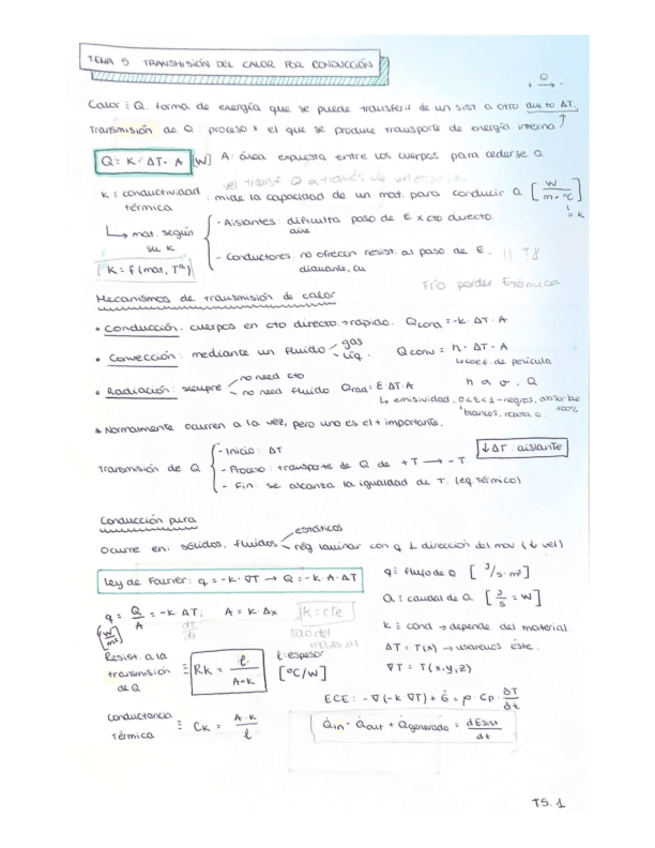 TEMA 5 TRANSMISIÓN DEL CALOR POR CONDUCCIÓN
Q
+ → -
Calor ≡ Q. forma de energía que se puede transferir de un sist a otro due to ΔT.
Transmisión de Q: proceso x el que se produce transporte de energía interna ↑
Q = K · ΔT · A [W] A: área expuesta entre los cuerpos para cederse Q
vel transf Q a través de un espesor.
K ≡ conductividad térmica : mide la capacidad de un mat. para conducir Q [W / m·ºC]
o K
↳ mat. según su K
- Aislantes: dificulta paso de E x cto directo.
aire
- Conductores: no ofrecen resist. al paso de E. || T8
diamante, Cu
K = f(mat, Tª)
Frío perder
Mecanismos de transmisión de calor
• Conducción: cuerpos en cto directo → rápido. Qcond = -K · ΔT · A
• Convección: mediante un fluido gas líq. Qconv = h · ΔT · A
↳ coef. de película
h a v, Q
• Radiación: siempre no need cto no need fluido Qrad = E · ΔT · A
↳ emisividad, 0<E<1 - negros, absorbe 100%
blancos, rebota Q.
* Normalmente ocurren a la vez, pero uno es el + importante.
↓ΔT : aislante
Transmisión de Q
- Inicio: ΔT
- Proceso: transporte de Q de +T → -T
- Fin: se alcanza la igualdad de T. (eq. térmico)
Conducción pura
Ocurre en: sólidos, fluidos estáticos rég laminar con q ⊥ dirección del mov (↓ vel)
Ley de Fourier: q = -K · ∇T → Q = -K · A · ΔT
q ≡ flujo de Q [J/s·m²]
Q ≡ caudal de Q [J/s = W]
q = Q/A = -K ΔT; A = K · Δx K = cte
[W/m²]
dT/dx
K ≡ cond → depende del material
ΔT = T(x) → usaremos éste.
∇T = T(x,y,z)
Resist. a la transmisión de Q ≡ RK = ℓ / A·K
ℓ: espesor
[ºC/W]
ECE: -∇(-K ∇T) + Ġ = ρ · Cp · ΔT/Δt
Conductancia térmica ≡ CK = A·K / ℓ
Q̇in - Q̇out + Q̇generado = dEsist / dt
T5.1